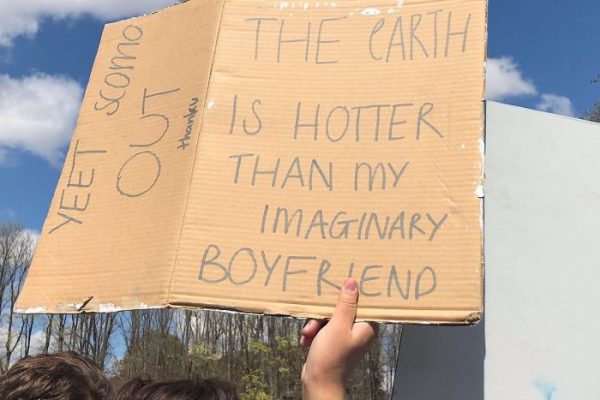 YEET SCOMO
OUT
thanku
THE EARTH
IS HOTTER
THAN MY
IMAGINARY
BOYFRIEND